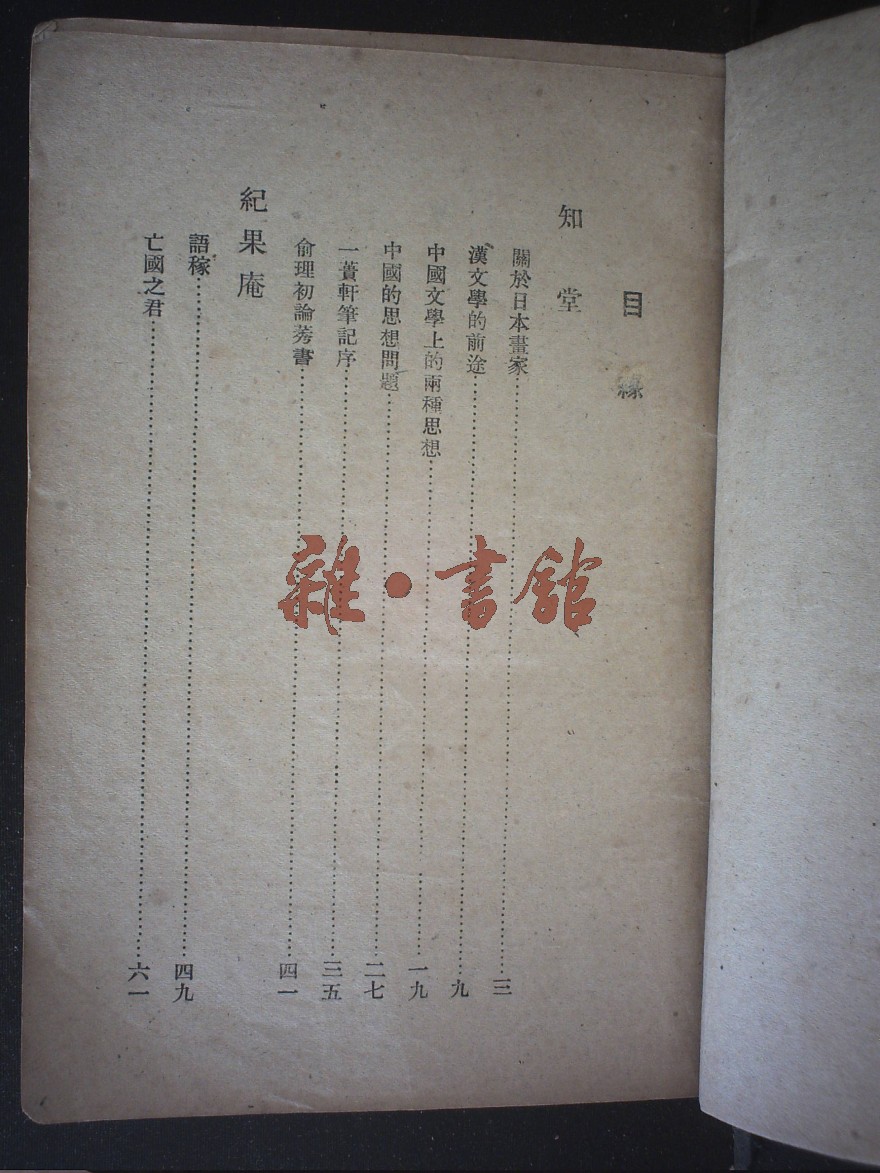 目錄
知堂
關於日本畫家……三
漢文學的前途……九
中國文學上的兩種思想……一九
中國的思想問題……二七
一蕢軒筆記序……三五
俞理初論莠書……四一
紀果庵
語稼……四九
亡國之君……六一
雜·書館